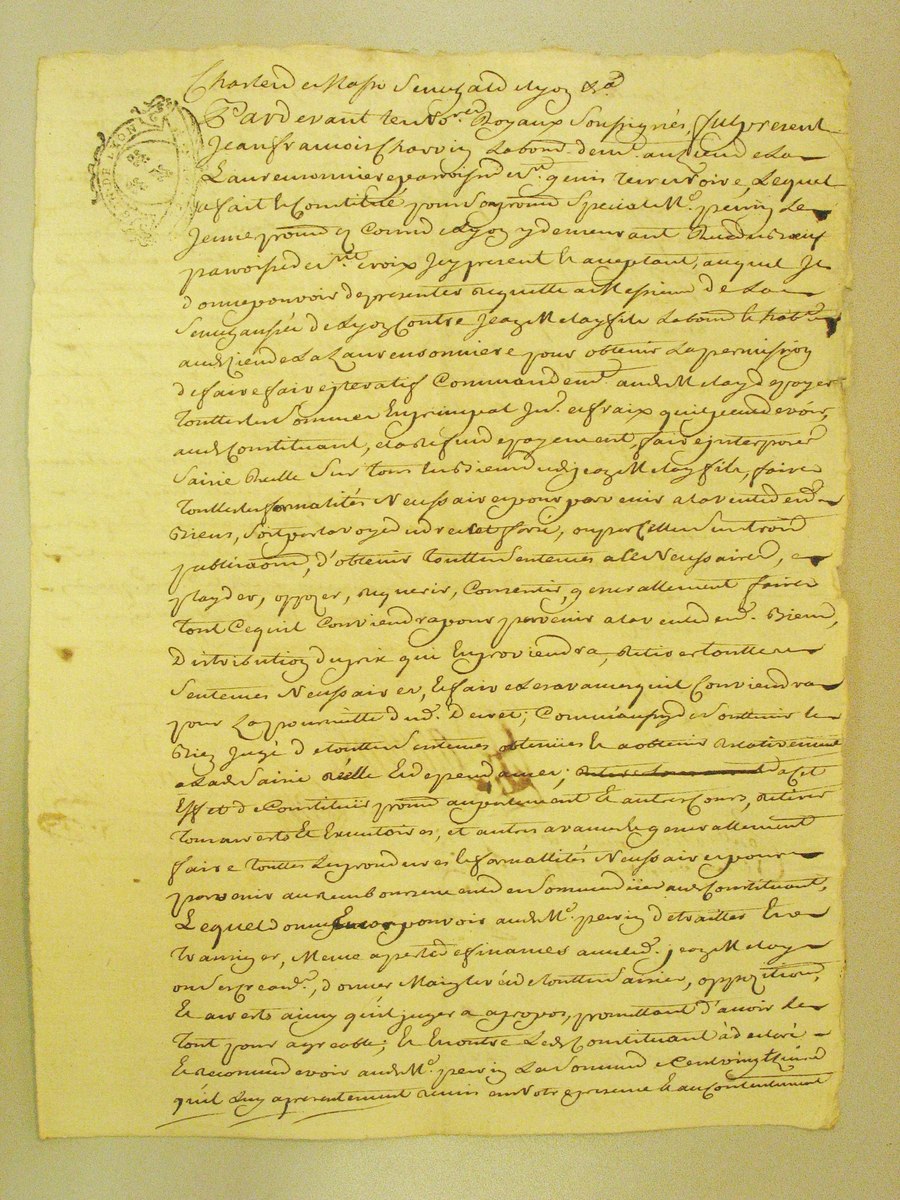 Charles de Masso Seneschal de Lyon &a
Pardevant les no.res Royaux soussignés, fut present
Jean francois Charvin Laboure demt. au lieu de La
Laurensonniere paroisse de St. genis terre noire, Lequel
a fait et constitué pour son procur Special Me. perrin Le
Jeune procur es Cours de Lyon y demeurant Rue du Bœuf
paroisse de Ste. croix Icy present et acceptant, auquel Il
donne pouvoir de presenter requette a Messieurs de La
Seneschaussée de Lyon Contre Jean Melay fils Laboure et habt.
audit Lieu de La Laurensonniere pour obtenir La permission
de faire faire iteratif Commandemt. audt. Melay de payer
touttes les Sommes En principal Jnt. et fraix qu'il peut devoir
audt. Constituant, et a Refus de payement, faire interposer
Saisie Reelle Sur tous les Biens dudt. jean Melay fils, faire
touttes les formalités Necessaires pour parvenir a la vente desd.
Biens, soit par la voye du decret forcé, ou par Celle des trois
publications, d'obtenir touttes Sentences a Ce Necessaires,
playder, oppozer, requerir, Consentir, generallement faire
tout Ce quil Conviendra pour parvenir a la vente desd. Biens,
Distribution du prix qui En proviendra, retirer touttes
Sentences Necessaires, Et faire Les avances quil Conviendra
pour La poursuitte dud. Decret; Comme aussy de Souttenir Le
Bien Jugé de touttes Sentences obtenües Et a obtenir Relativement
a Lad. Saisie réelle Et dependances; a Cet
Effet de Constituer procur au parlement Et autres Cours, retirer
tous arrests Et Executoires, et autres avances Et generallement
faire touttes Les procedures et formallités Necessaires pour
parvenir au remboursement des Sommes dües audt. Constituant,
Lequel donne Encor pouvoir audt. Me. perrin de traitter Et
transiger, Meme a perte de finances avec led. jean Melay
ou Ses creanc., donner Mainlevée de touttes Saisies, oppozitions,
Et arrests ainsy qu'il jugera a propos, promettant d'avoir Le
tout pour agreable; Et Encontre Led. Constituant à declaré
Et reconnu devoir audt. Me. perrin La Somme de Cent vingt Livres
qu'il Luy a presentement remis en notre presence Et au Contentement